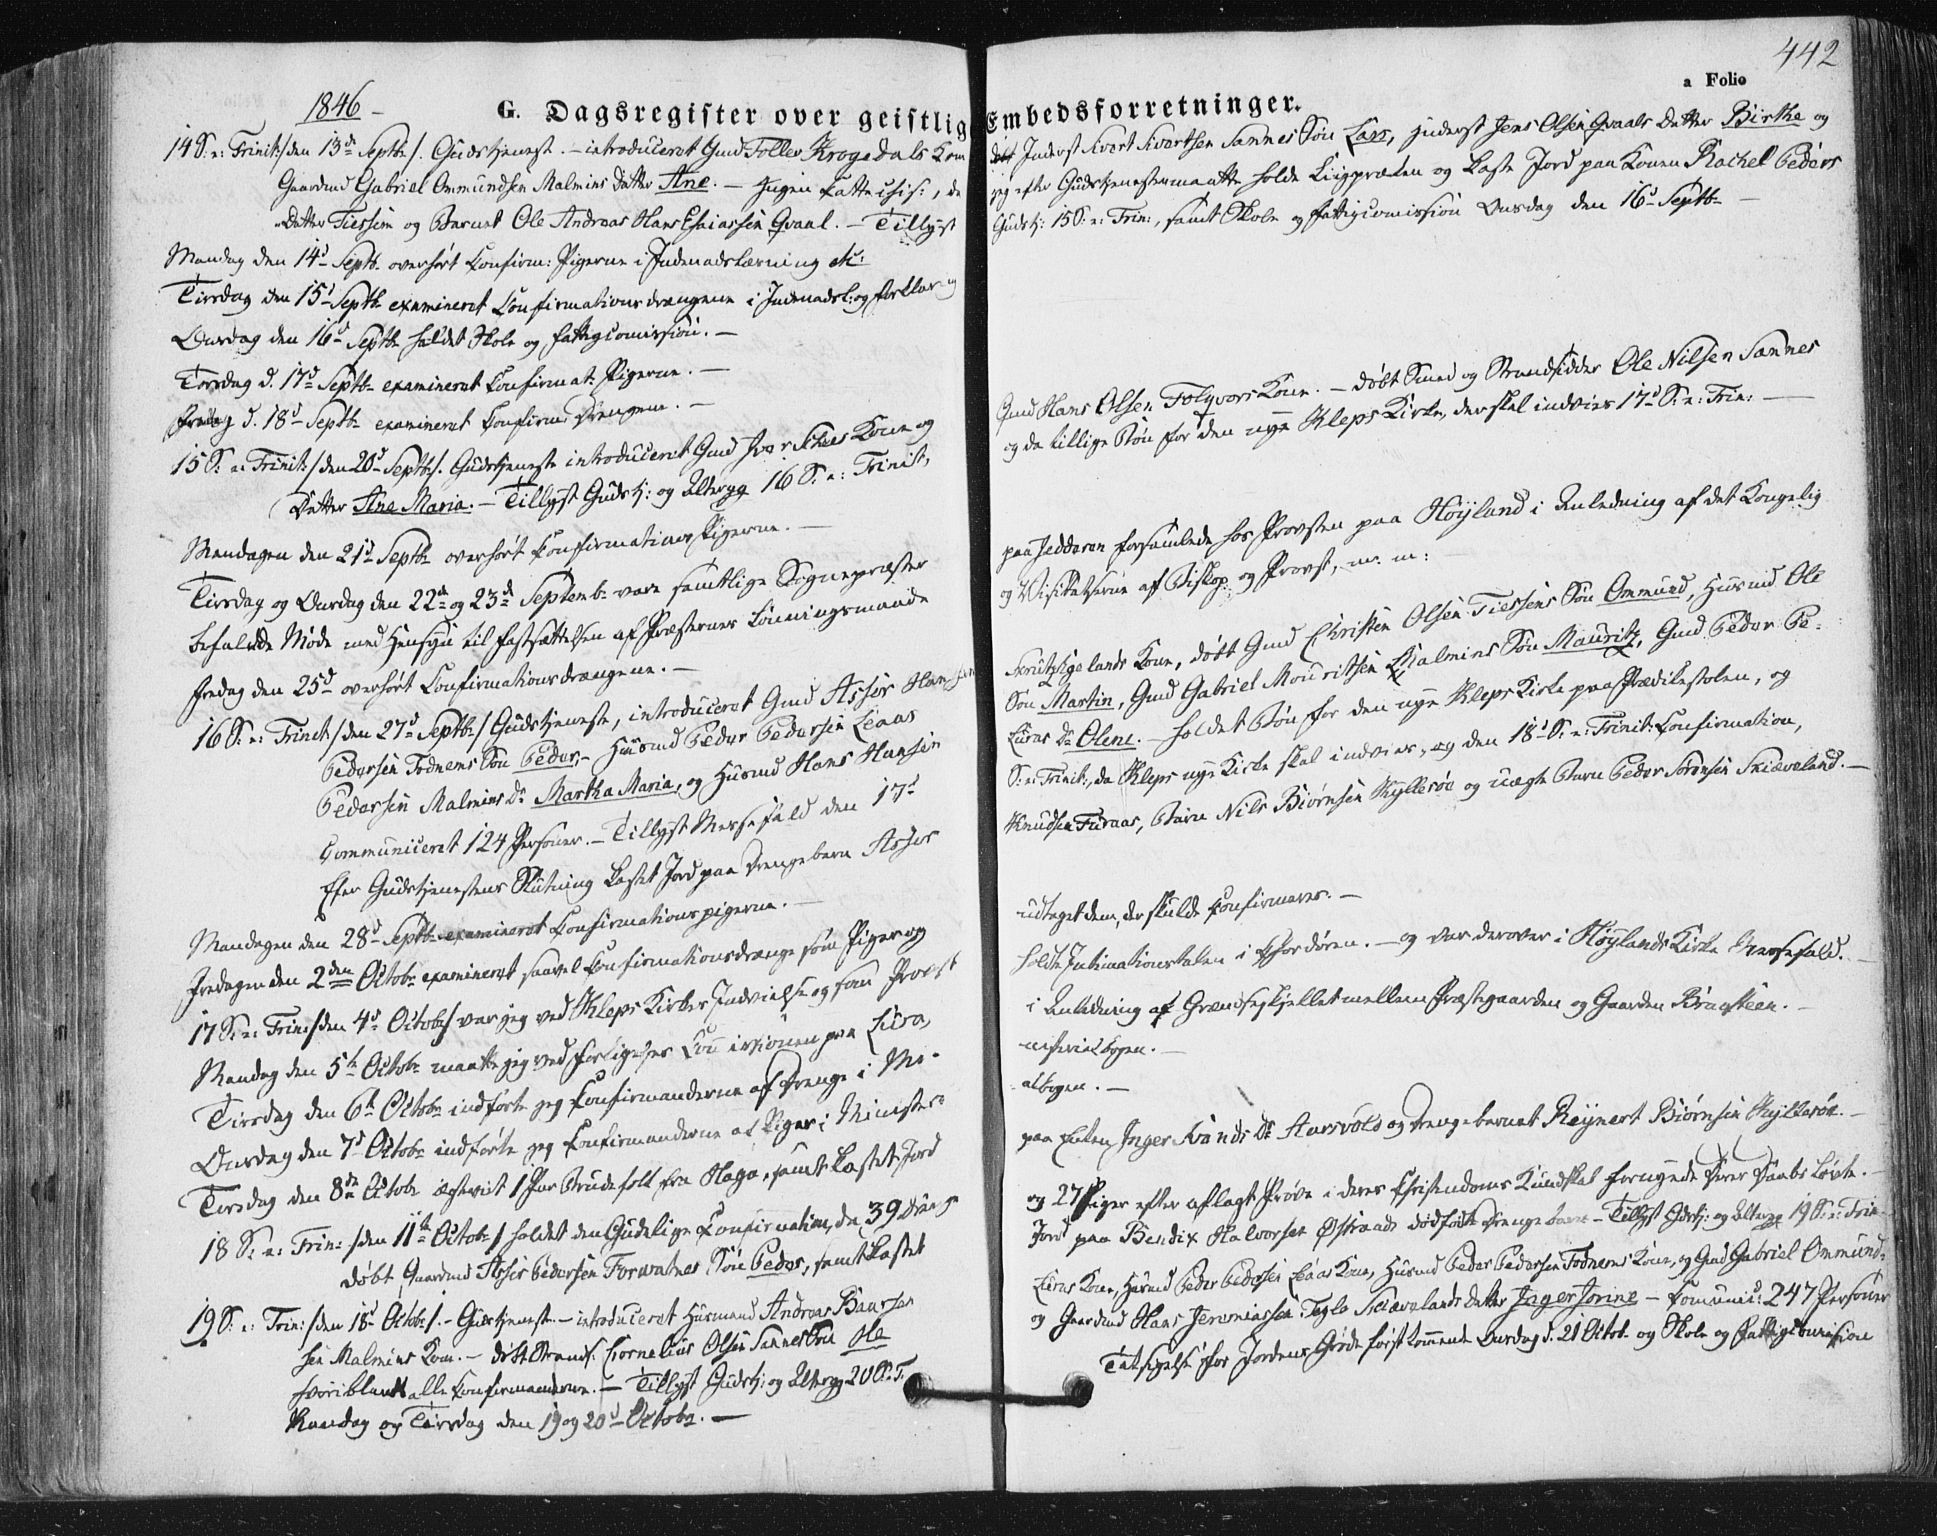 442
a Folio
1846 -
G. Dagsregister over geistlig Embedsforretninger.
14 S. e: Trinit: /den 13de Septbr/. Gudstjeneste. - introduceret Gmd Tollev Krogedals Kone
Gaardmd Gabriel Ommundsen Malmins Datter Ane. - Ingen Catechis:, da
Datter Tiessem og Barnet Ole Andreas Hans Esaiassen Qvaal. - Tillyst
Mandag den 14d Septbr overhørt Confirm: Pigerne i Indenadslæsning etc:
Tirsdag den 15d Septbr examineret Confirmationsdrengene i Indenadsl: og Forklaring
Onsdag den 16d Septbr holdet Skole og Fattigcomission. -
Torsdag d. 17d Septbr examineret Confirmat: Pigerne. -
Fredag d. 18d Septbr examineret Confirm: Drengene. -
15 S. e: Trinit: /den 20d Septbr/. Gudstjeneste introduceret Gmd Iver Kone og
Datter Ane Maria. - Tillyst Gudstj: og Alterg 16 S. e: Trinit,
Mandagen den 21d Septbr overhørt Confirmations Pigerne. -
Tirsdag og Onsdag den 22de og 23de Septemb. vare samtlige Sognepræster
befalede Møde med Hensyn til Fastsættelsen af Præsternes Lønningsmaade
Fredag den 25d overhørt Confirmationsdrengene. -
16 S. e: Trinit /den 27d Septbr/ Gudstjeneste, introduceret Gmd Asser Hansen
Pedersen Todnems Søn Peder, - Husmd Peder Pedersen Leaas
Pedersen Malmins Dr Martha Maria, og Husmd Hans Hansen
Communiceret 124 Personer. - Tillyst Messefald den 17d
Efter Gudstjenestens Slutning kastet Jord paa Drengebarn Asser
Mandagen den 28d Septbr examineret Confirmationspigerne. -
Fredagen den 2den Octobr examineret saavel Confirmationsdrenge som Piger og
17 S. e: Trin: /den 4d Octobr/ var jeg ved Kleps Kirkes Indvielse og som Provst
Mandag den 5te Octobr maatte jeg ved Forligelses Comissionen paa Lura,
Tirsdag den 6te Octobr indførte jeg Confirmanderne af Drenge i Mi-
Onsdag den 7d Octobr indførte jeg Confirmanderne af Piger i Minister-
Torsdag den 8de Octobr ægteviet 1 Par Brudefolk fra Haga, samt kastet Jord
18 S. e: Trin: /den 11te Octobr/ holdet den Gudelige Confirmation, da 39 Drenge
døbt Gaardmd Asser Pedersen Søn Peder, samt kastet
19 S. e: Trin: /den 18d Octobr/. - Gudstjeneste. - introduceret Husmand Andreas Baarsen
sen Malmins Kone. - døbt Strands. Cornelius Olsen Sannes Søn Ole
hvoriblandt alle Confirmanderne. - Tillyst Gudstj: og Alterg 20 S. e. T.
Mandag og Tirsdag den 19 og 20d Octobr. -
døbt Inderst Sivert Sivertsen Sannes Søn Lars, Inderst Jens Olsen Qvaals Datter Birthe og
jeg efter Gudstjenesten maatte holde Liigpræken og kaste Jord paa Konen Rachel Peders
Gudstj: 15 S. e: Trin:, samt Skole og Fattigcomission Onsdag den 16d Septbr -
Gmd Hans Olsen Folqvors Kone. - døbt Smed og Strandsidder Ole Nilsen Sannes
og da tillige Bøn for den nye Kleps Kirke, der skal indvies 17d S. e: Trin: -
paa Jedderen forsamlede hos Provsten paa Høyland i Anledning af det Kongelig
og Visitatserne af Biskop og Provst, m. m:
Skrutzligelands Kone, døbt Gmd Christen Olsen Tiessems Søn Ommund, Husmd Ole
Søn Martin, Gmd Gabriel Mouritsen Malmins Søn Mauritz, Gmd Peder Pe-
Luras Dr Olene. - holdet Bøn for den nye Kleps Kirke paa Prædikestolen, og
S. e: Trinit:, da Kleps nye Kirke skal indvies, og den 18d S. e: Trinit: Confirmation,
Knudsen Furaas, Barn Nils Biørnsen Kyllesøe og uægte Barn Peder Sørensen Skiæveland. -
udtaget dem, der skulde Confirmeres. -
holdt Intimationstalen i Chordøren. - og var derover i Høylands Kirke Messefald. -
i Anledning af Grændseskjellet mellem Præstegaarden og Gaarden Brueseen. -
nisterialbogen. -
albogen. -
paa Enken Inger Svends Dr Aarsvols og Drengebarnet Reynert Biørnsen Kyllesøe. -
og 27 Piger efter aflagt Prøve i deres Christendoms Kundskab fornyede Deres Daabs Løvte. -
Jord paa Bendix Halvorsen Østraads dødfødte Drenge barn - Tillyst Gudstj: og Alterg 19 S. e: Trin
Luras Kone, Husmd Peder Pedersen Leaas Kone, Husmd Peder Pedersen Todnems Kone, og Gmd Gabriel Ommund-
og Gaardmd Hans Jeremiassen Tegle Skiævelands Datter Inger Serine - Comunic: 247 Personer
Taksigelse for Jordens Grøde førstkommende Onsdag d. 21 Octob. og Skole og Fattigcomission